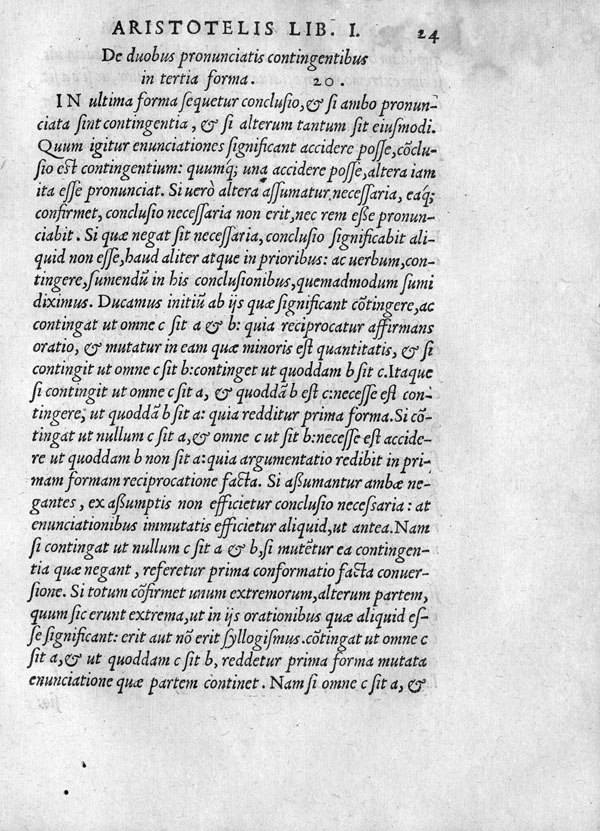 ARISTOTELIS LIB. I. 24
De duobus pronunciatis contingentibus
in tertia forma. 20.
IN ultima forma sequetur conclusio, & si ambo pronun-
ciata sint contingentia, & si alterum tantum sit eiusmodi.
Quum igitur enunciationes significant accidere posse, cõclu-
sio est contingentium: quumq; una accidere posse, altera iam
ita esse pronunciat. Si uerò altera assumatur necessaria, eaq́;
confirmet, conclusio necessaria non erit, nec rem esse pronun-
ciabit. Si quæ negat sit necessaria, conclusio significabit ali-
quid non esse, haud aliter atque in prioribus: ac uerbum, con-
tingere, sumendũ in his conclusionibus, quemadmodum sumi
diximus. Ducamus initiũ ab ijs quæ significant cõtingere, ac
contingat ut omne c sit a & b: quia reciprocatur affirmans
oratio, & mutatur in eam quæ minoris est quantitatis, & si
contingit ut omne c sit b: continget ut quoddam b sit c. Itaque
si contingit ut omne c sit a, & quoddã b est c: necesse est con-
tingere, ut quoddã b sit a: quia redditur prima forma. Si cõ-
tingat ut nullum c sit a, & omne c ut sit b: necesse est accide-
re ut quoddam b non sit a: quia argumentatio redibit in pri-
mam formam reciprocatione facta. Si assumantur ambæ ne-
gantes, ex assumptis non efficietur conclusio necessaria: at
enunciationibus immutatis efficietur aliquid, ut antea. Nam
si contingat ut nullum c sit a & b, si mutẽtur ea contingen-
tia quæ negant, referetur prima conformatio facta conuer-
sione. Si totum cõfirmet unum extremorum, alterum partem,
quum sic erunt extrema, ut in ijs orationibus quæ aliquid es-
se significant: erit aut nõ erit syllogismus. cõtingat ut omne c
sit a, & ut quoddam c sit b, reddetur prima forma mutata
enunciatione quæ partem continet. Nam si omne c sit a, &